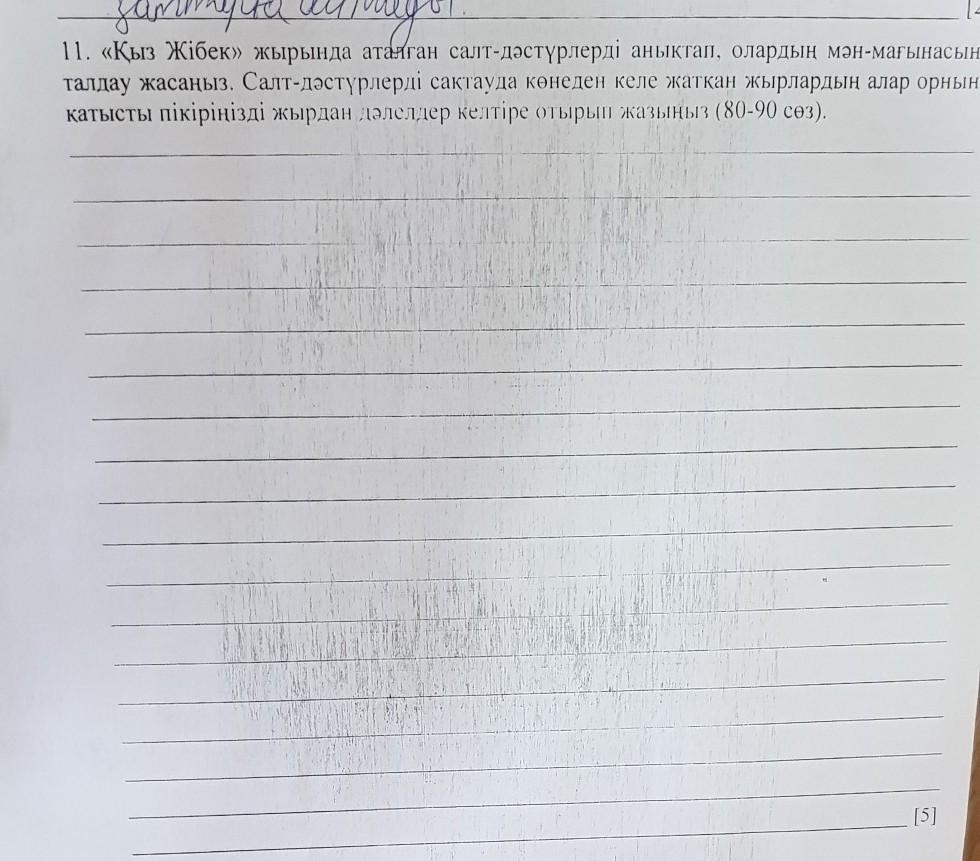 11. «Қыз Жібек» жырында аталған салт-дәстүрлерді анықтап, олардың мән-мағынасын
талдау жасаңыз. Салт-дәстүрлерді сақтауда көнеден келе жатқан жырлардың алар орнын
қатысты пікіріңізді жырдан дәлелдер келтіре отырып жазыңыз (80-90 сөз).
[5]